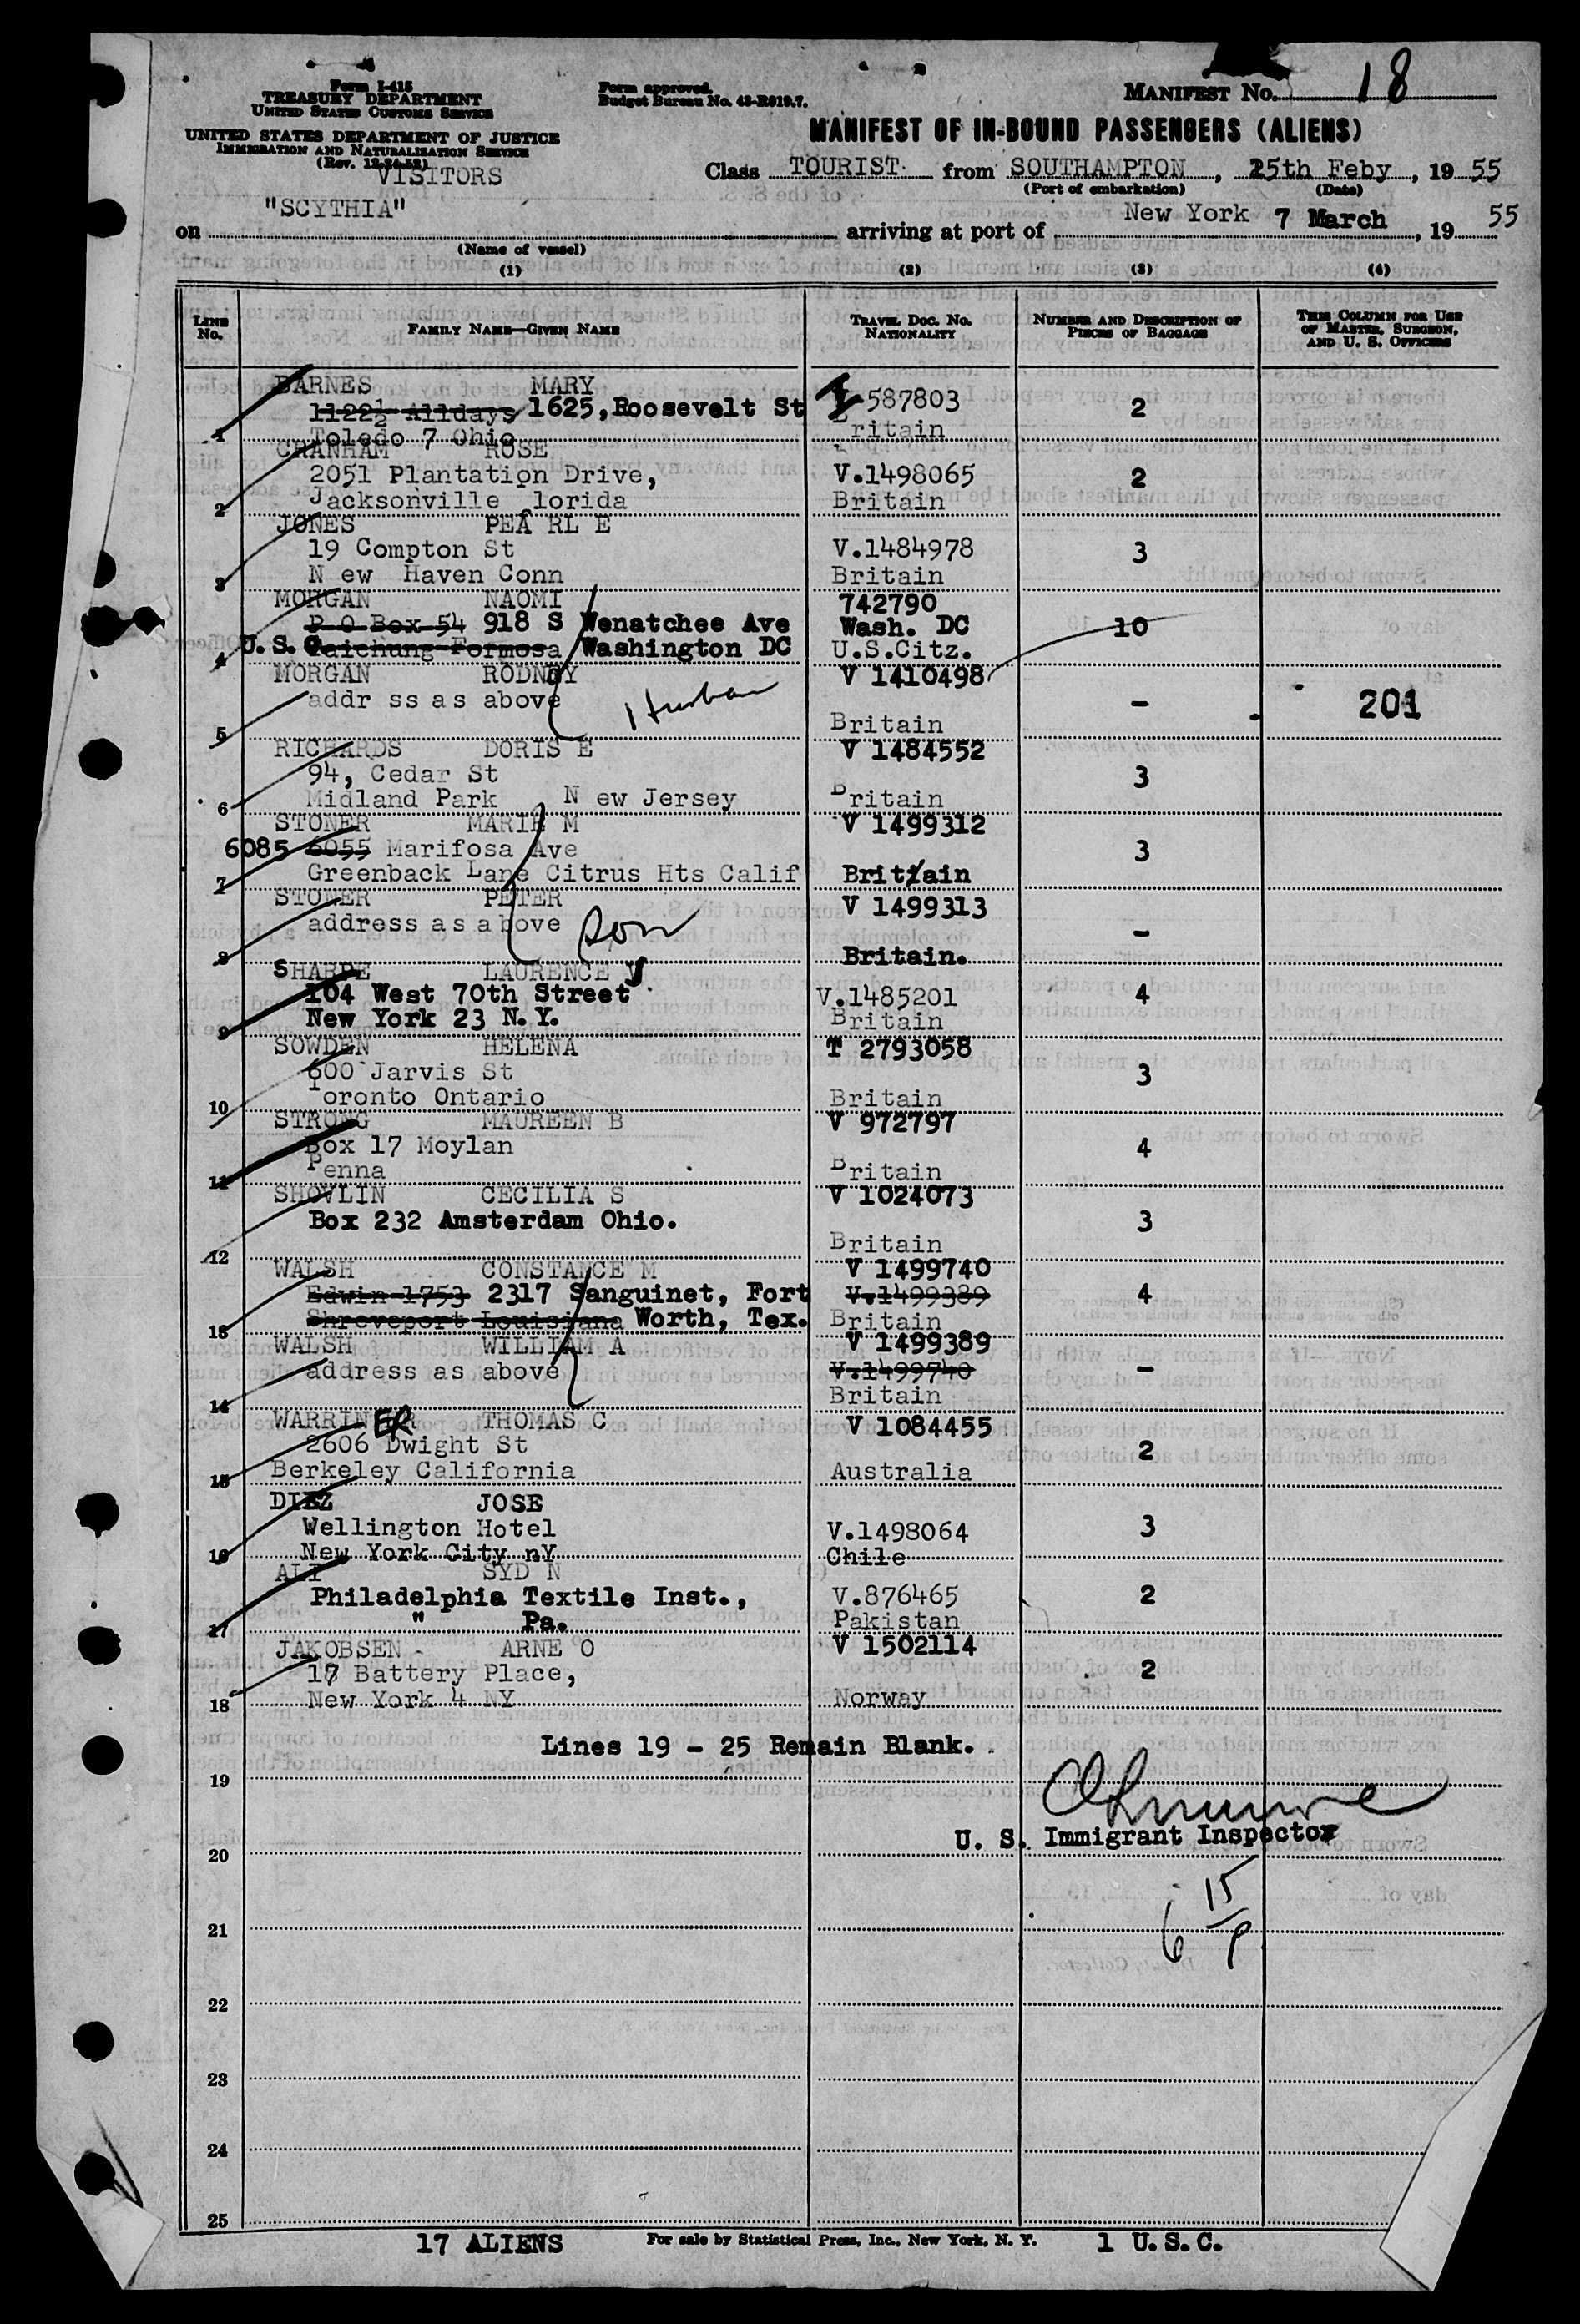 Form I-415
TREASURY DEPARTMENT
UNITED STATES CUSTOMS SERVICE
UNITED STATES DEPARTMENT OF JUSTICE
IMMIGRATION AND NATURALIZATION SERVICE
(Rev. 12-24-52)
VISITORS
Form approved.
Budget Bureau No. 43-R019.7.
MANIFEST No. 18
MANIFEST OF IN-BOUND PASSENGERS (ALIENS)
Class TOURIST from SOUTHAMPTON, 25th Feby, 19 55
(Port of embarkation) (Date)
on "SCYTHIA" arriving at port of New York 7 March, 19 55
(Name of vessel)
(1) (2) (3) (4)
LINE No. FAMILY NAME—GIVEN NAME TRAVEL DOC. No. NATIONALITY NUMBER AND DESCRIPTION OF PIECES OF BAGGAGE THIS COLUMN FOR USE OF MASTER, SURGEON, AND U. S. OFFICERS
BARNES MARY
1122½ Alldays 1625, Roosevelt St I 587803 2
1 Toledo 7 Ohio Britain
CRANHAM ROSE
2051 Plantation Drive, V.1498065 2
2 Jacksonville lorida Britain
JONES PEA RL E
19 Compton St V.1484978 3
3 N ew Haven Conn Britain
MORGAN NAOMI 742790
P O Box 54 918 S Wenatchee Ave Wash. DC 10
4 U.S.C. Taichung Formosa Washington DC U.S.Citz.
MORGAN RODNEY V 1410498
addr ss as above Husban - 201
5 Britain
RICHARDS DORIS E V 1484552
94, Cedar St 3
6 Midland Park N ew Jersey Britain
STONER MARIE M V 1499312
6085 6055 Marifosa Ave 3
7 Greenback Lane Citrus Hts Calif Britain
STONER PETER V 1499313
address as a bove Son -
8 Britain.
SHARPE LAURENCE V.
104 West 70th Street V.1485201 4
9 New York 23 N.Y. Britain
SOWDEN HELENA T 2793058
600 Jarvis St 3
10 Toronto Ontario Britain
STRONG MAUREEN B V 972797
Box 17 Moylan 4
11 Penna Britain
SHOVLIN CECILIA S V 1024073
Box 232 Amsterdam Ohio. 3
12 Britain
WALSH CONSTANCE M V 1499740
Edwin 1753 2317 Sanguinet, Fort V.1499389 4
13 Shreveport Louisiana Worth, Tex. Britain
WALSH WILLIAM A V 1499389
address as above V.1499740 -
14 Britain
WARRINER THOMAS C V 1084455
2606 Dwight St 2
15 Berkeley California Australia
DIEZ JOSE
Wellington Hotel V.1498064 3
16 New York City nY Chile
ALY SYD N
Philadelphia Textile Inst., V.876465 2
17 " Pa. Pakistan
JAKOBSEN - ARNE O V 1502114
17 Battery Place, 2
18 New York 4 NY Norway
Lines 19 - 25 Remain Blank.
19
U. S. Immigrant Inspector
20
15
21 6
22
23
24
25
17 ALIENS For sale by Statistical Press, Inc., New York, N. Y. 1 U.S.C.